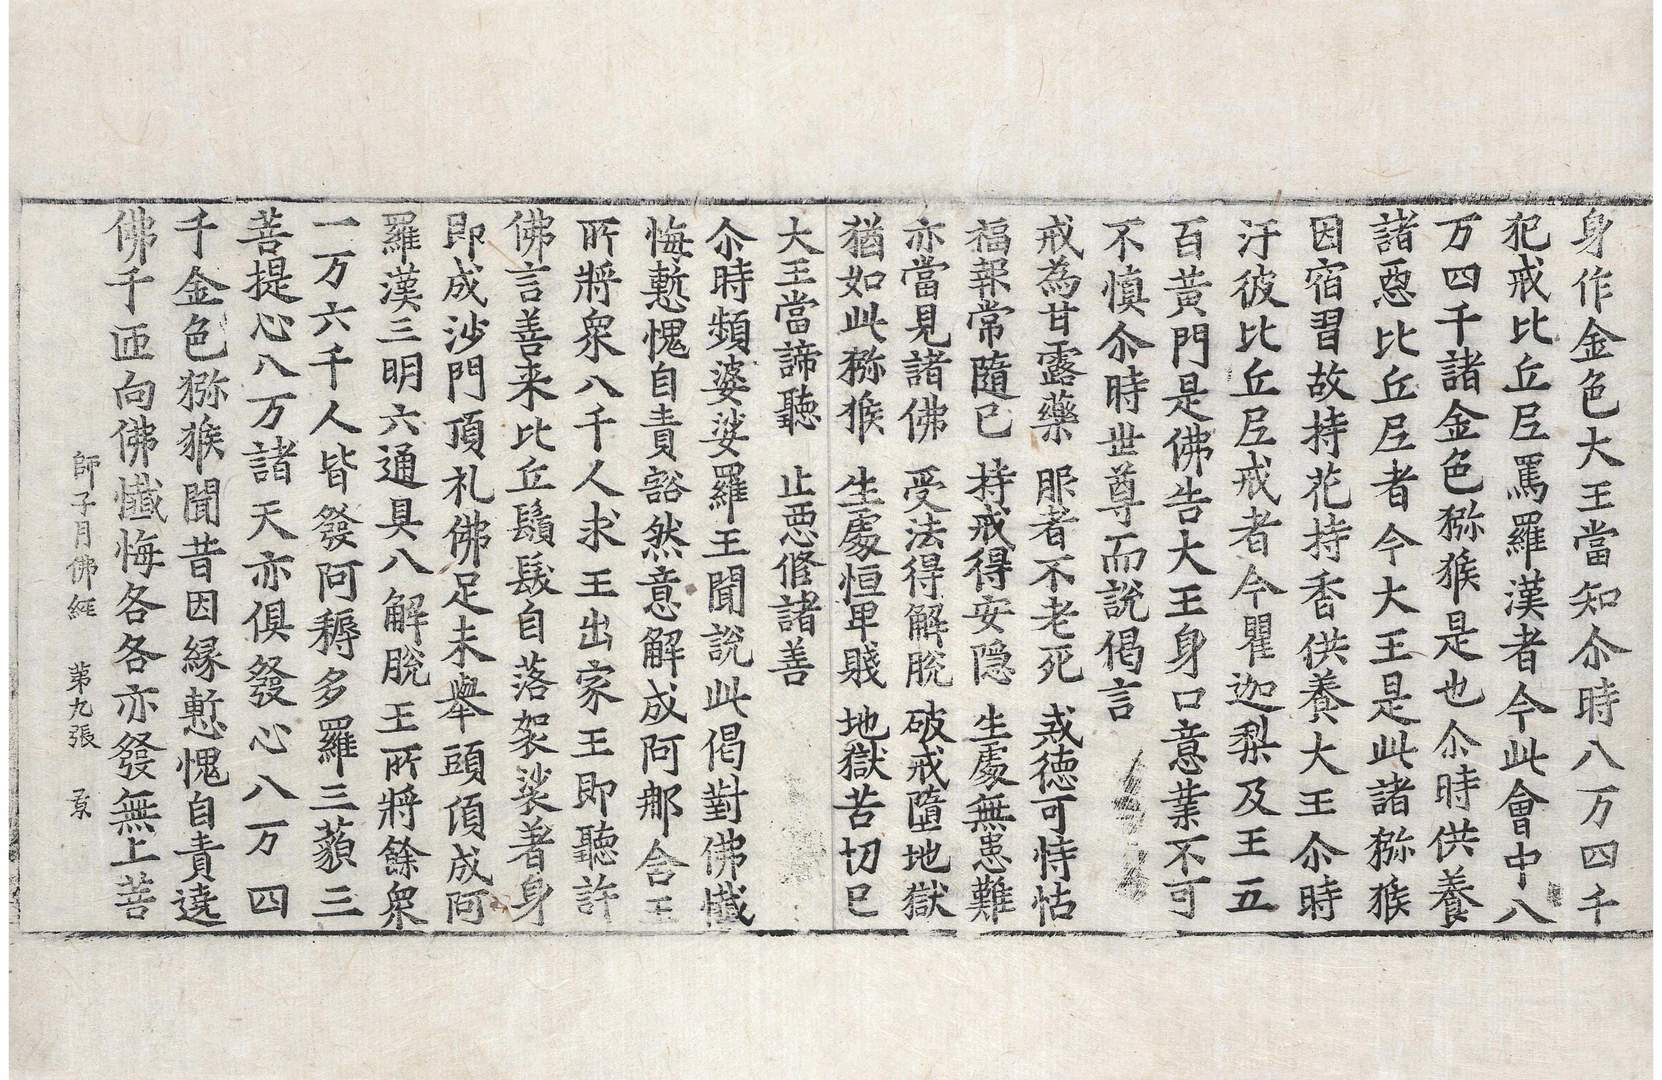 身作金色大王當知尒時八万四千
犯戒比丘尼罵羅漢者今此會中八
万四千諸金色猕猴是也尒時供養
諸惡比丘尼者今大王是此諸猕猴
因宿習故持花持香供養大王尒時
汙彼比丘尼戒者今瞿迦梨及王五
百黄門是佛告大王身口意業不可
不慎尒時世尊而說偈言
戒為甘露藥　服者不老死　戒德可恃怙
福報常隨已　持戒得安隱　生處無患難
亦當見諸佛　受法得解脫　破戒墮地獄
猶如此猕猴　生處恒卑賤　地獄苦切已
大王當諦聽　止惡俢諸善
尒時頻婆娑羅王聞說此偈對佛懺
悔慙愧自責豁然意解成阿那含王
所將衆八千人求王出家王即聽許
佛言善来比丘鬚髮自落袈裟著身
即成沙門頂礼佛足未舉頭頃成阿
羅漢三明六通具八解脫王所將餘衆
一万六千人皆發阿耨多羅三藐三
菩提心八万諸天亦俱發心八万四
千金色猕猴聞昔因緣慙愧自責遶
佛千匝向佛懺悔各各亦發無上菩
師子月佛經　第九張